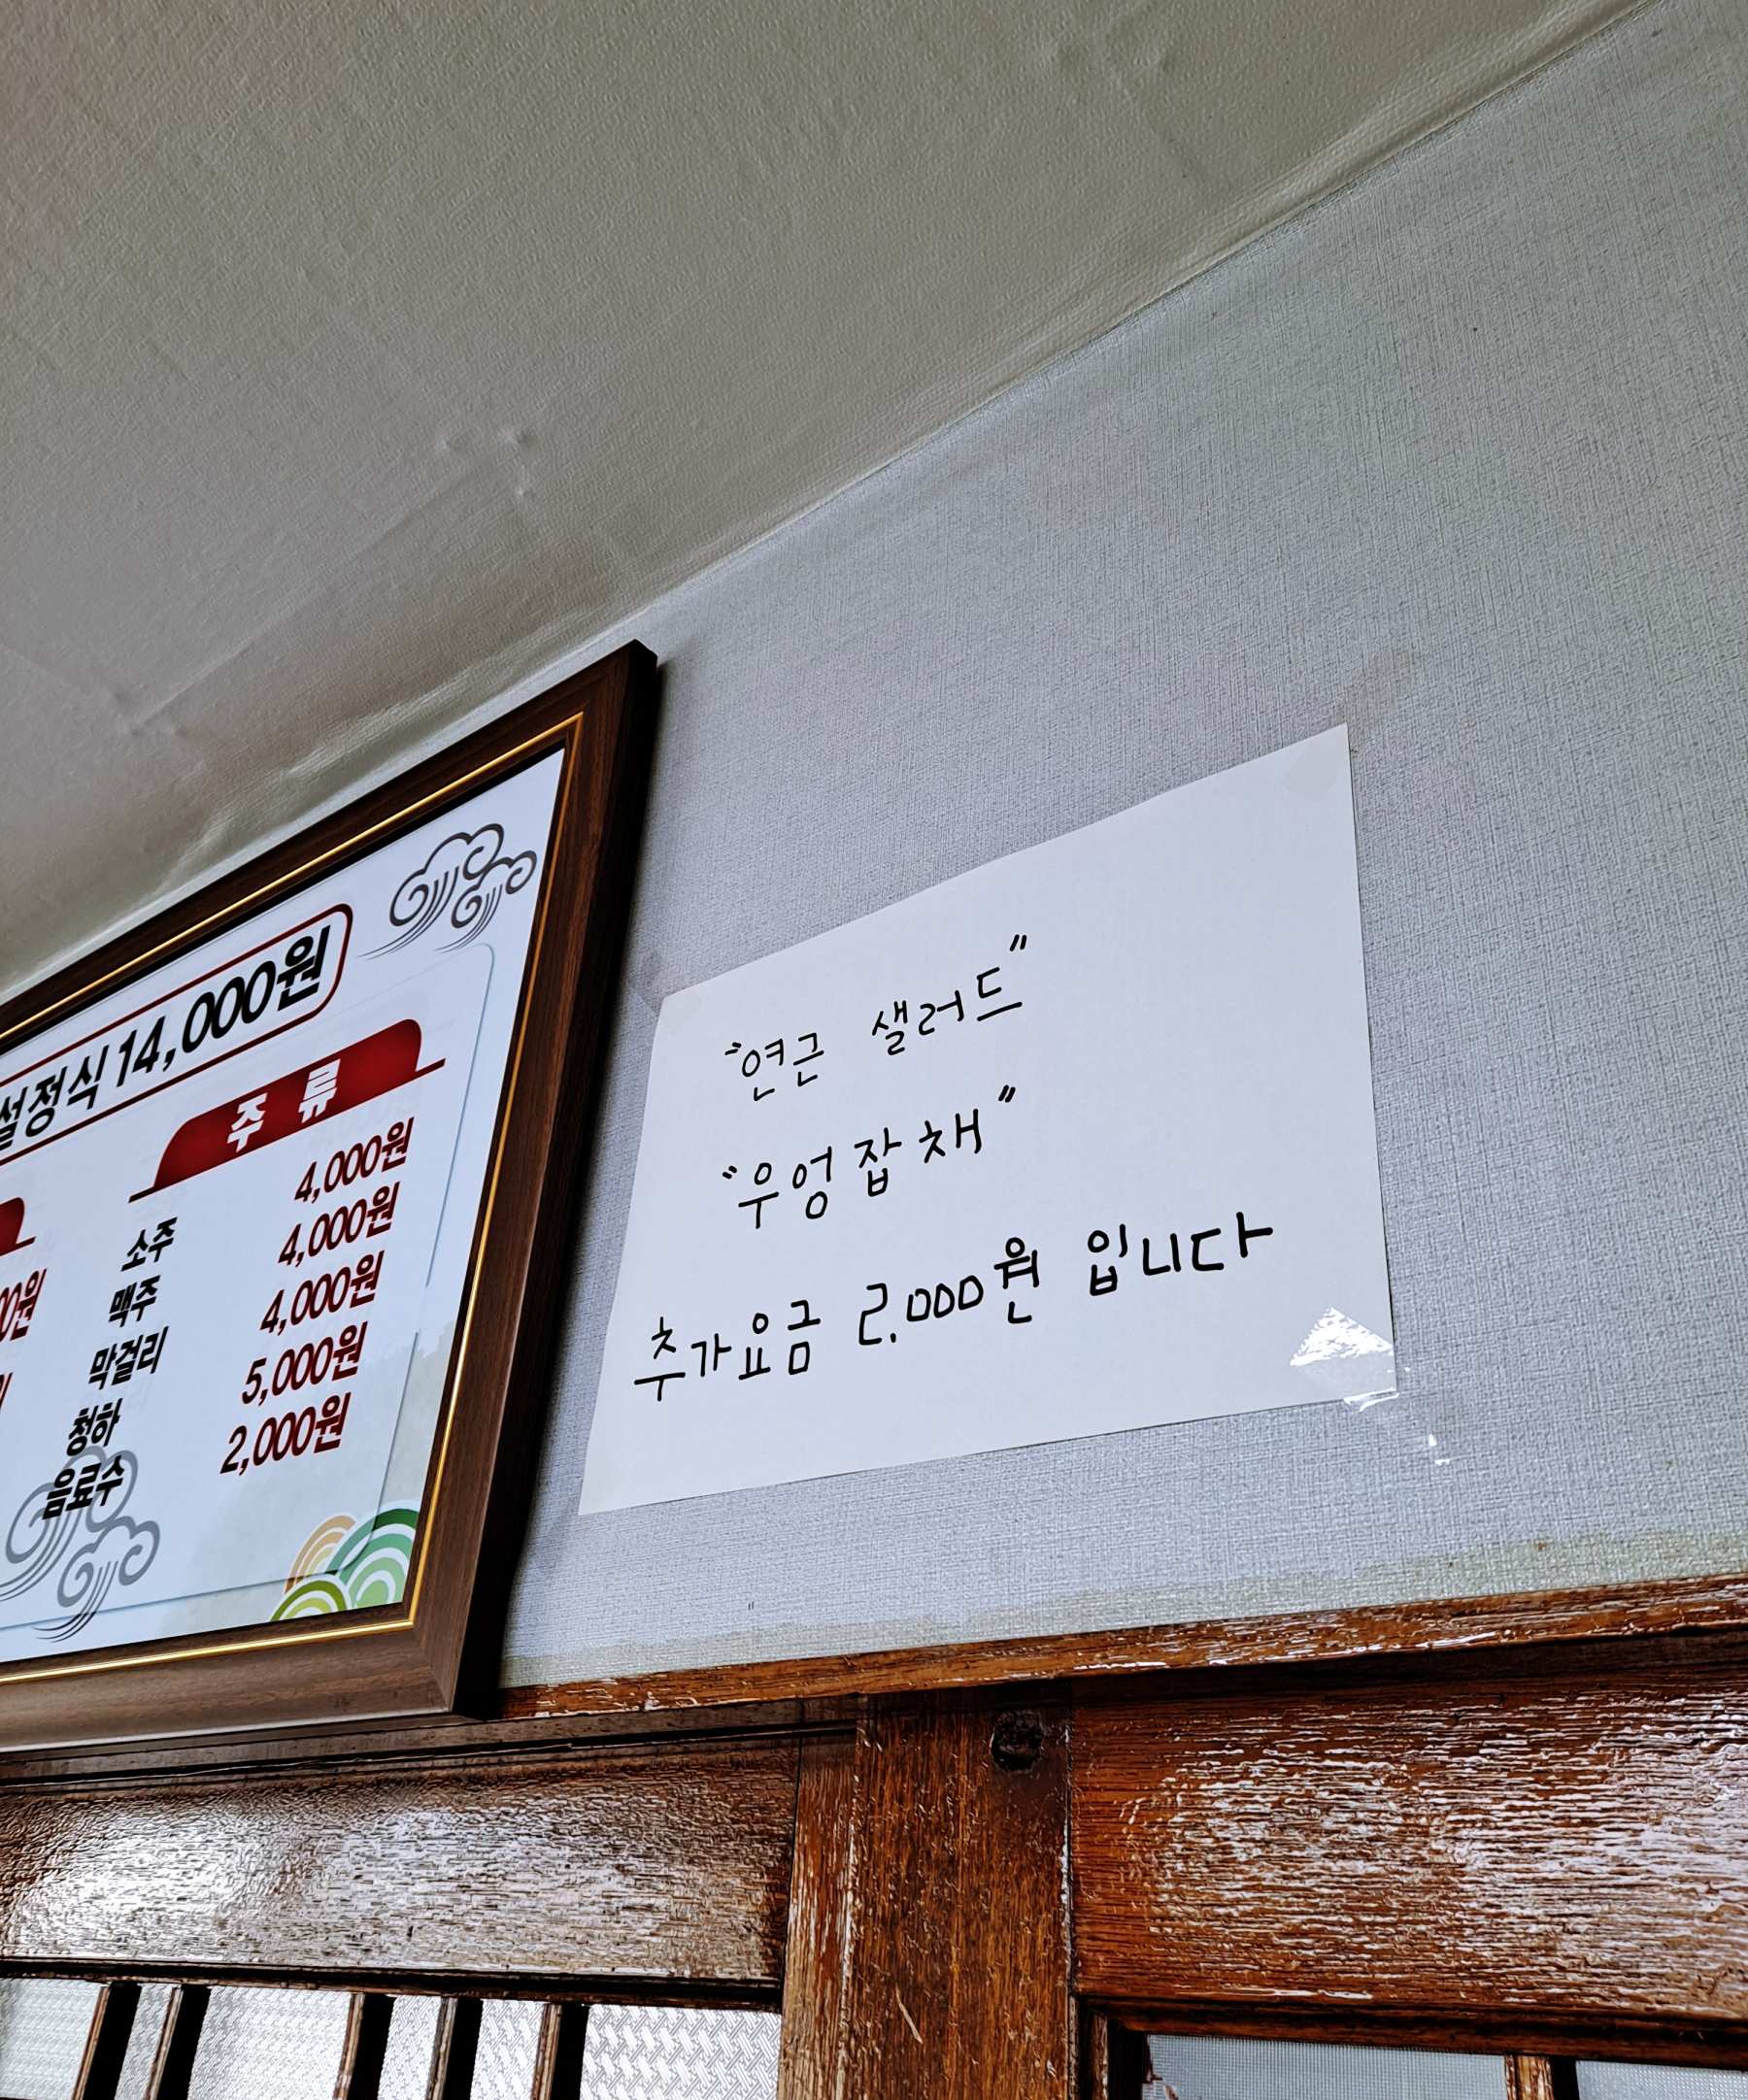 설정식 14,000원
주 류
소주 4,000원
맥주 4,000원
막걸리 4,000원
청하 5,000원
음료수 2,000원
"연근 샐러드"
"우엉잡채"
추가요금 2,000원 입니다